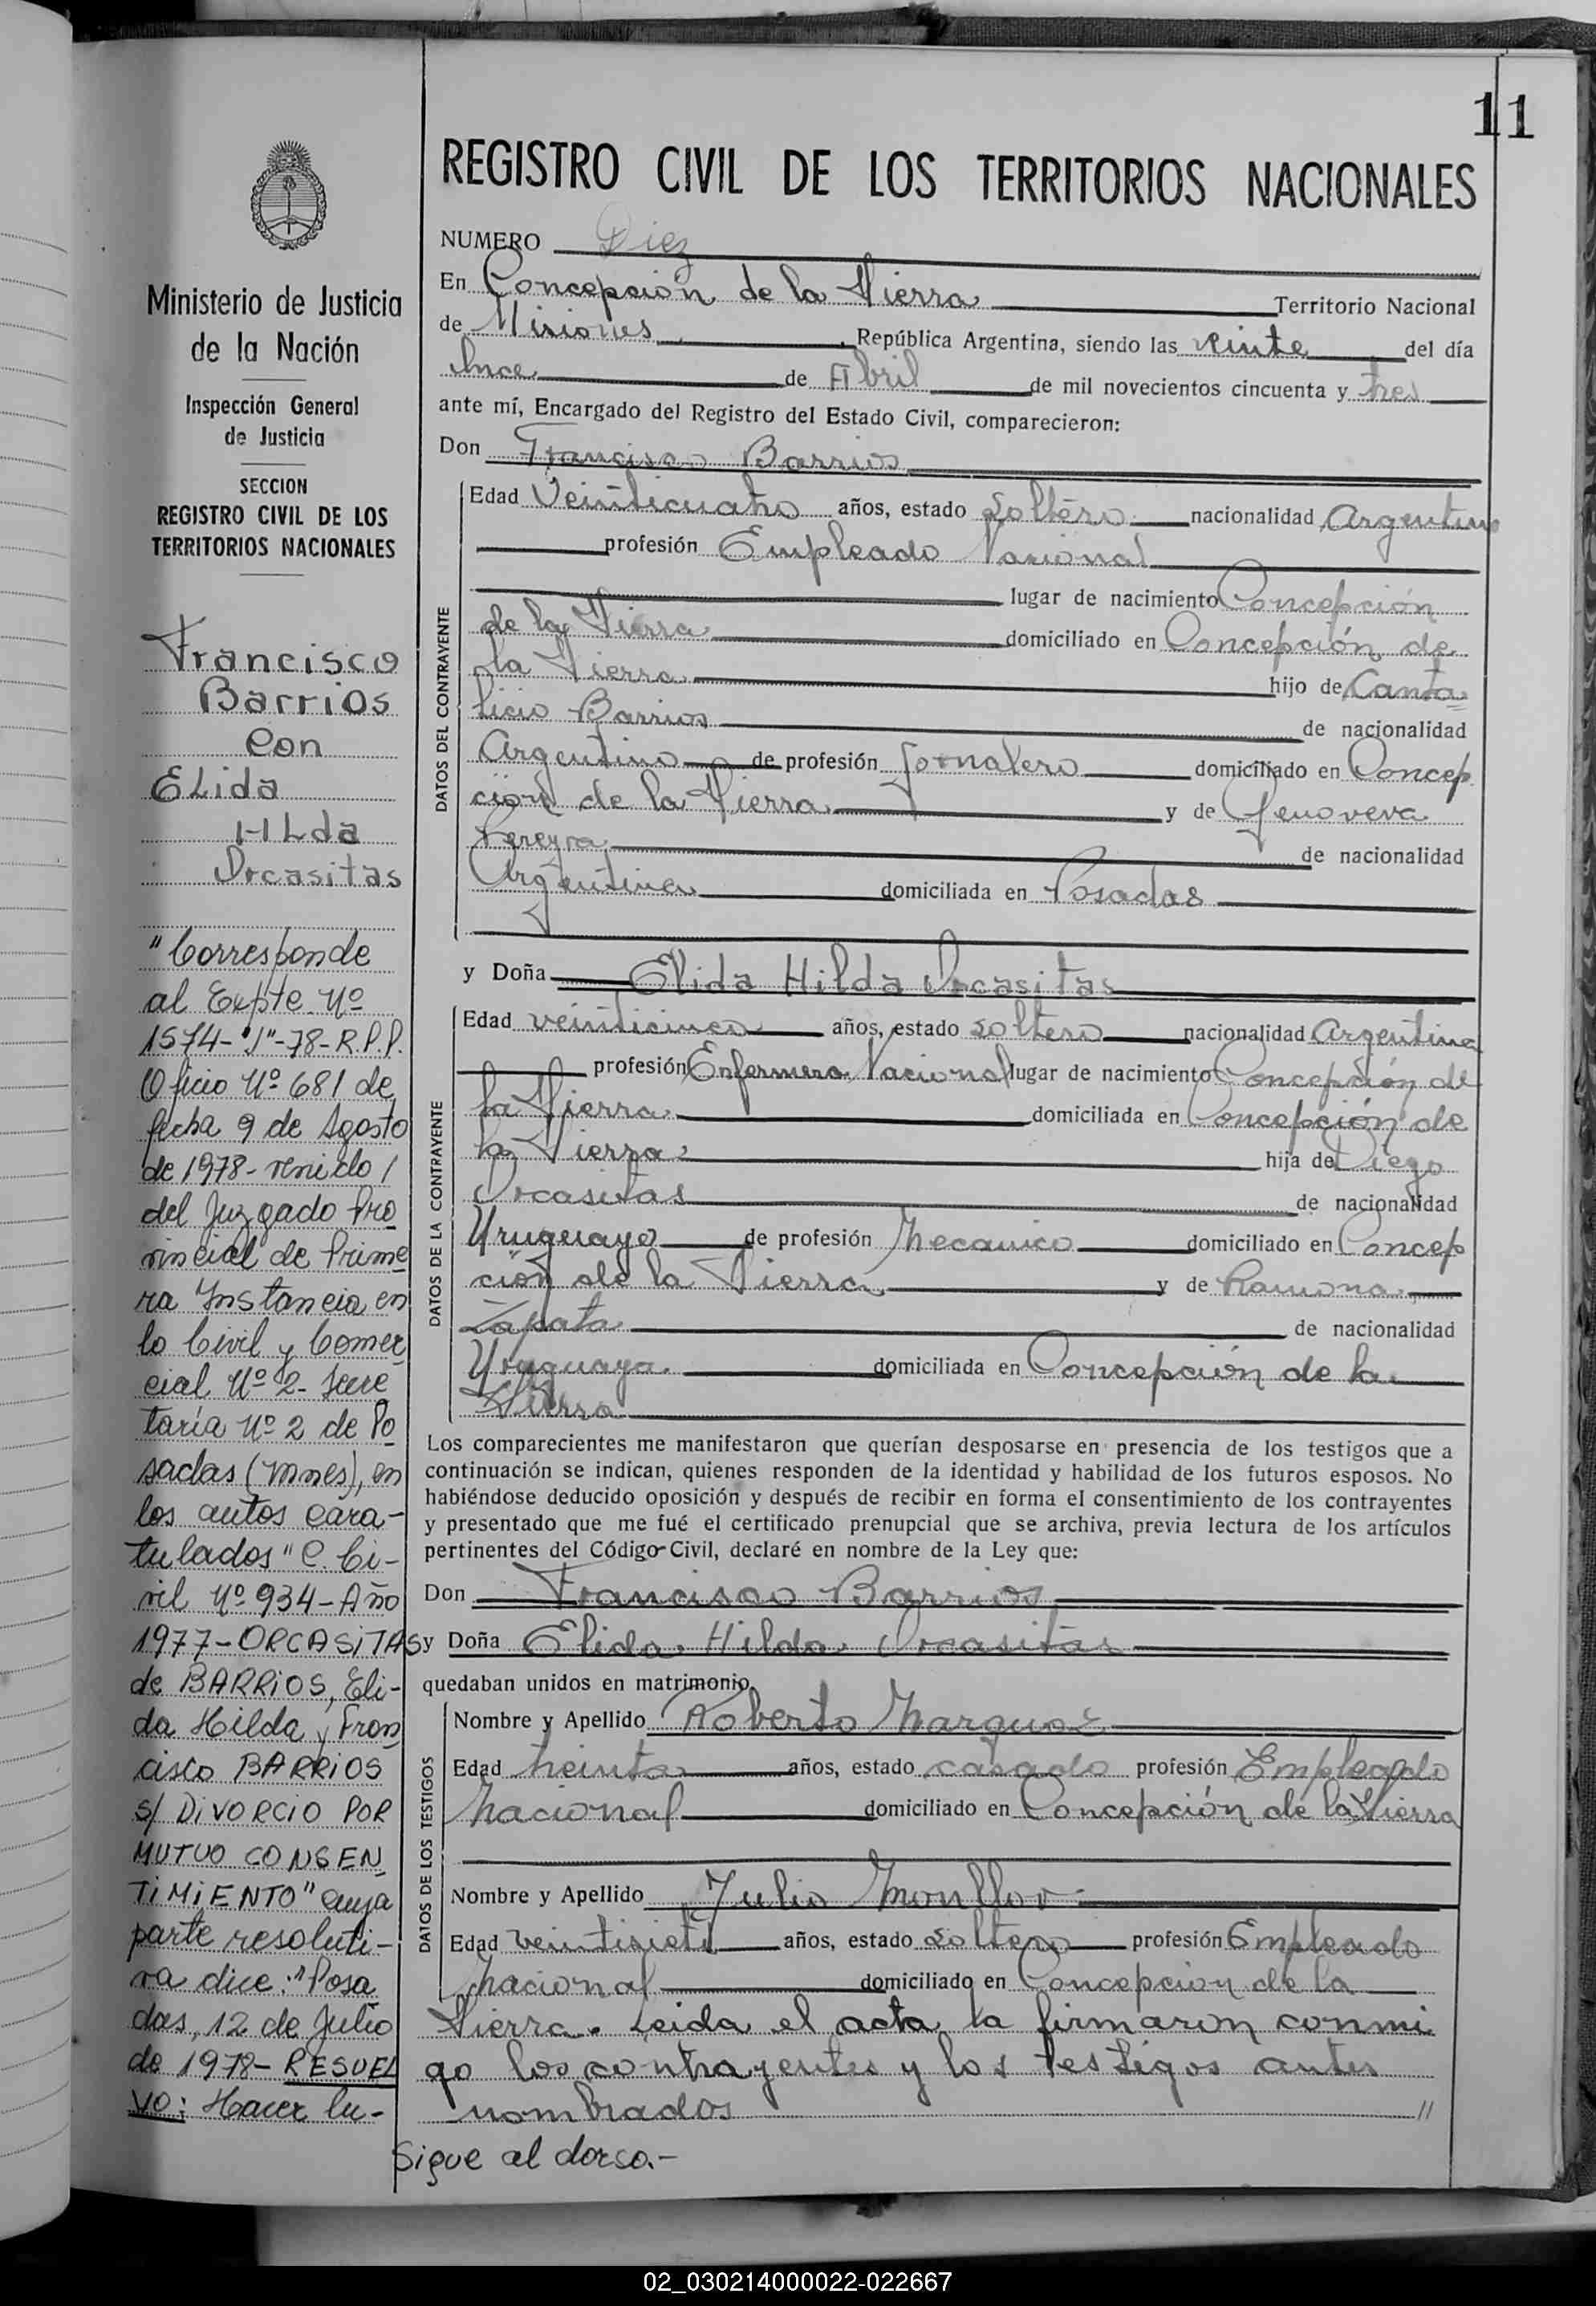 11
REGISTRO CIVIL DE LOS TERRITORIOS NACIONALES
NUMERO Diez
En Concepción de la Sierra Territorio Nacional
de Misiones, República Argentina, siendo las veinte del día
Once de Abril de mil novecientos cincuenta y tres
ante mí, Encargado del Registro del Estado Civil, comparecieron:
Don Francisco Barrios
DATOS DEL CONTRAYENTE
Edad Veinticuatro años, estado soltero nacionalidad Argentino
profesión Empleado Nacional
lugar de nacimiento Concepción
de la Sierra domiciliado en Concepción de
la Sierra hijo de Canta
licio Barrios de nacionalidad
Argentino de profesión Jornalero domiciliado en Concep
ción de la Sierra y de Genoveva
Pereyra de nacionalidad
Argentina domiciliada en Posadas
y Doña Elida Hilda Orcasitas
DATOS DE LA CONTRAYENTE
Edad veinticinco años, estado soltera nacionalidad Argentina
profesión Enfermera Nacional lugar de nacimiento Concepción de
la Sierra domiciliada en Concepción de
la Sierra hija de Diego
Orcasitas de nacionalidad
Uruguayo de profesión Mecanico domiciliado en Concep
ción de la Sierra y de Ramona
Zapata de nacionalidad
Uruguaya domiciliada en Concepción de la
Sierra
Los comparecientes me manifestaron que querían desposarse en presencia de los testigos que a
continuación se indican, quienes responden de la identidad y habilidad de los futuros esposos. No
habiéndose deducido oposición y después de recibir en forma el consentimiento de los contrayentes
y presentado que me fué el certificado prenupcial que se archiva, previa lectura de los artículos
pertinentes del Código Civil, declaré en nombre de la Ley que:
Don Francisco Barrios
y Doña Elida Hilda Orcasitas
quedaban unidos en matrimonio.
DATOS DE LOS TESTIGOS
Nombre y Apellido Roberto Marquez
Edad treinta años, estado casado profesión Empleado
Nacional domiciliado en Concepción de la Sierra
Nombre y Apellido Julio Monllor
Edad veintisiete años, estado soltero profesión Empleado
Nacional domiciliado en Concepción de la
Sierra. Leida el acta la firmaron conmi
go los contrayentes y los testigos antes
nombrados //
Ministerio de Justicia
de la Nación
Inspección General
de Justicia
SECCION
REGISTRO CIVIL DE LOS
TERRITORIOS NACIONALES
Francisco
Barrios
con
ELida
HLda
Orcasitas
"Corresponde
al Expte. Nº
1574-"J"-78-R.P.P.
Oficio Nº 681 de
fecha 9 de Agosto
de 1978- venido /
del Juzgado Pro
vincial de Prime
ra Instancia en
lo Civil y Comer
cial Nº 2- Secre
taría Nº 2 de Po
sadas (Mnes), en
los autos cara-
tulados "C. Ci-
vil Nº 934-Año
1977-ORCASITAS
de BARRIOS, Eli-
da Hilda y Fran
cisco BARRIOS
s/ DIVORCIO POR
MUTUO CONSEN
TIMIENTO" cuya
parte resoluti-
va dice: "Posa
das, 12 de Julio
de 1978- RESUEL
VO: Hacer lu-
Sigue al dorso.-
02_030214000022-022667